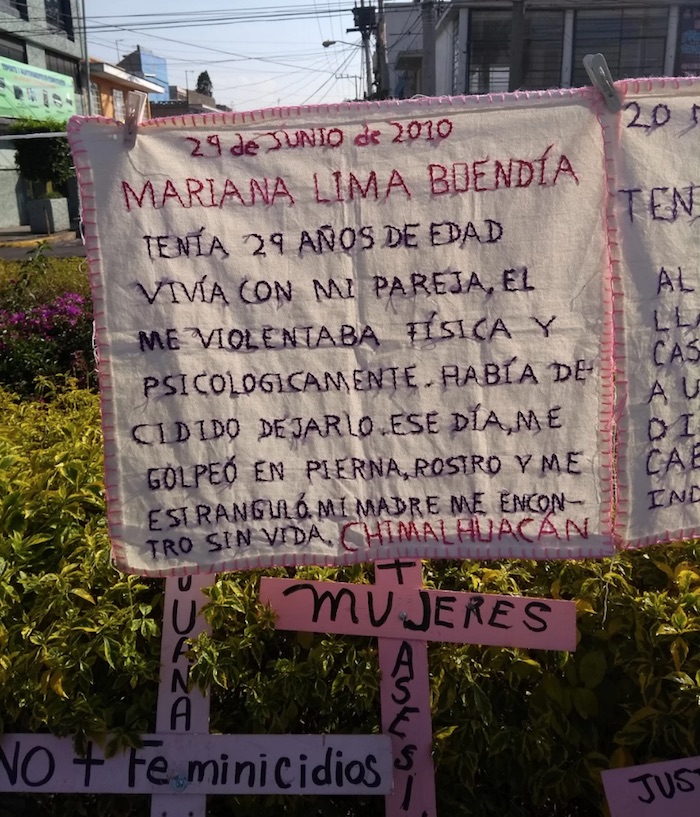 29 de JUNIO de 2010
MARIANA LIMA BUENDÍA
TENÍA 29 AÑOS DE EDAD
VIVÍA CON MI PAREJA, EL
ME VIOLENTABA FÍSICA Y
PSICOLOGICAMENTE. HABÍA DE-
CIDIDO DEJARLO. ESE DÍA, ME
GOLPEÓ EN PIERNA, ROSTRO Y ME
ESTRANGULÓ. MI MADRE ME ENCON-
TRO SIN VIDA. CHIMALHUACÁN
20
TEN
AL
CAS
A U
DI
IN
JUANA
+ MUJERES
ASESI
NO + Feminicidios
JUS